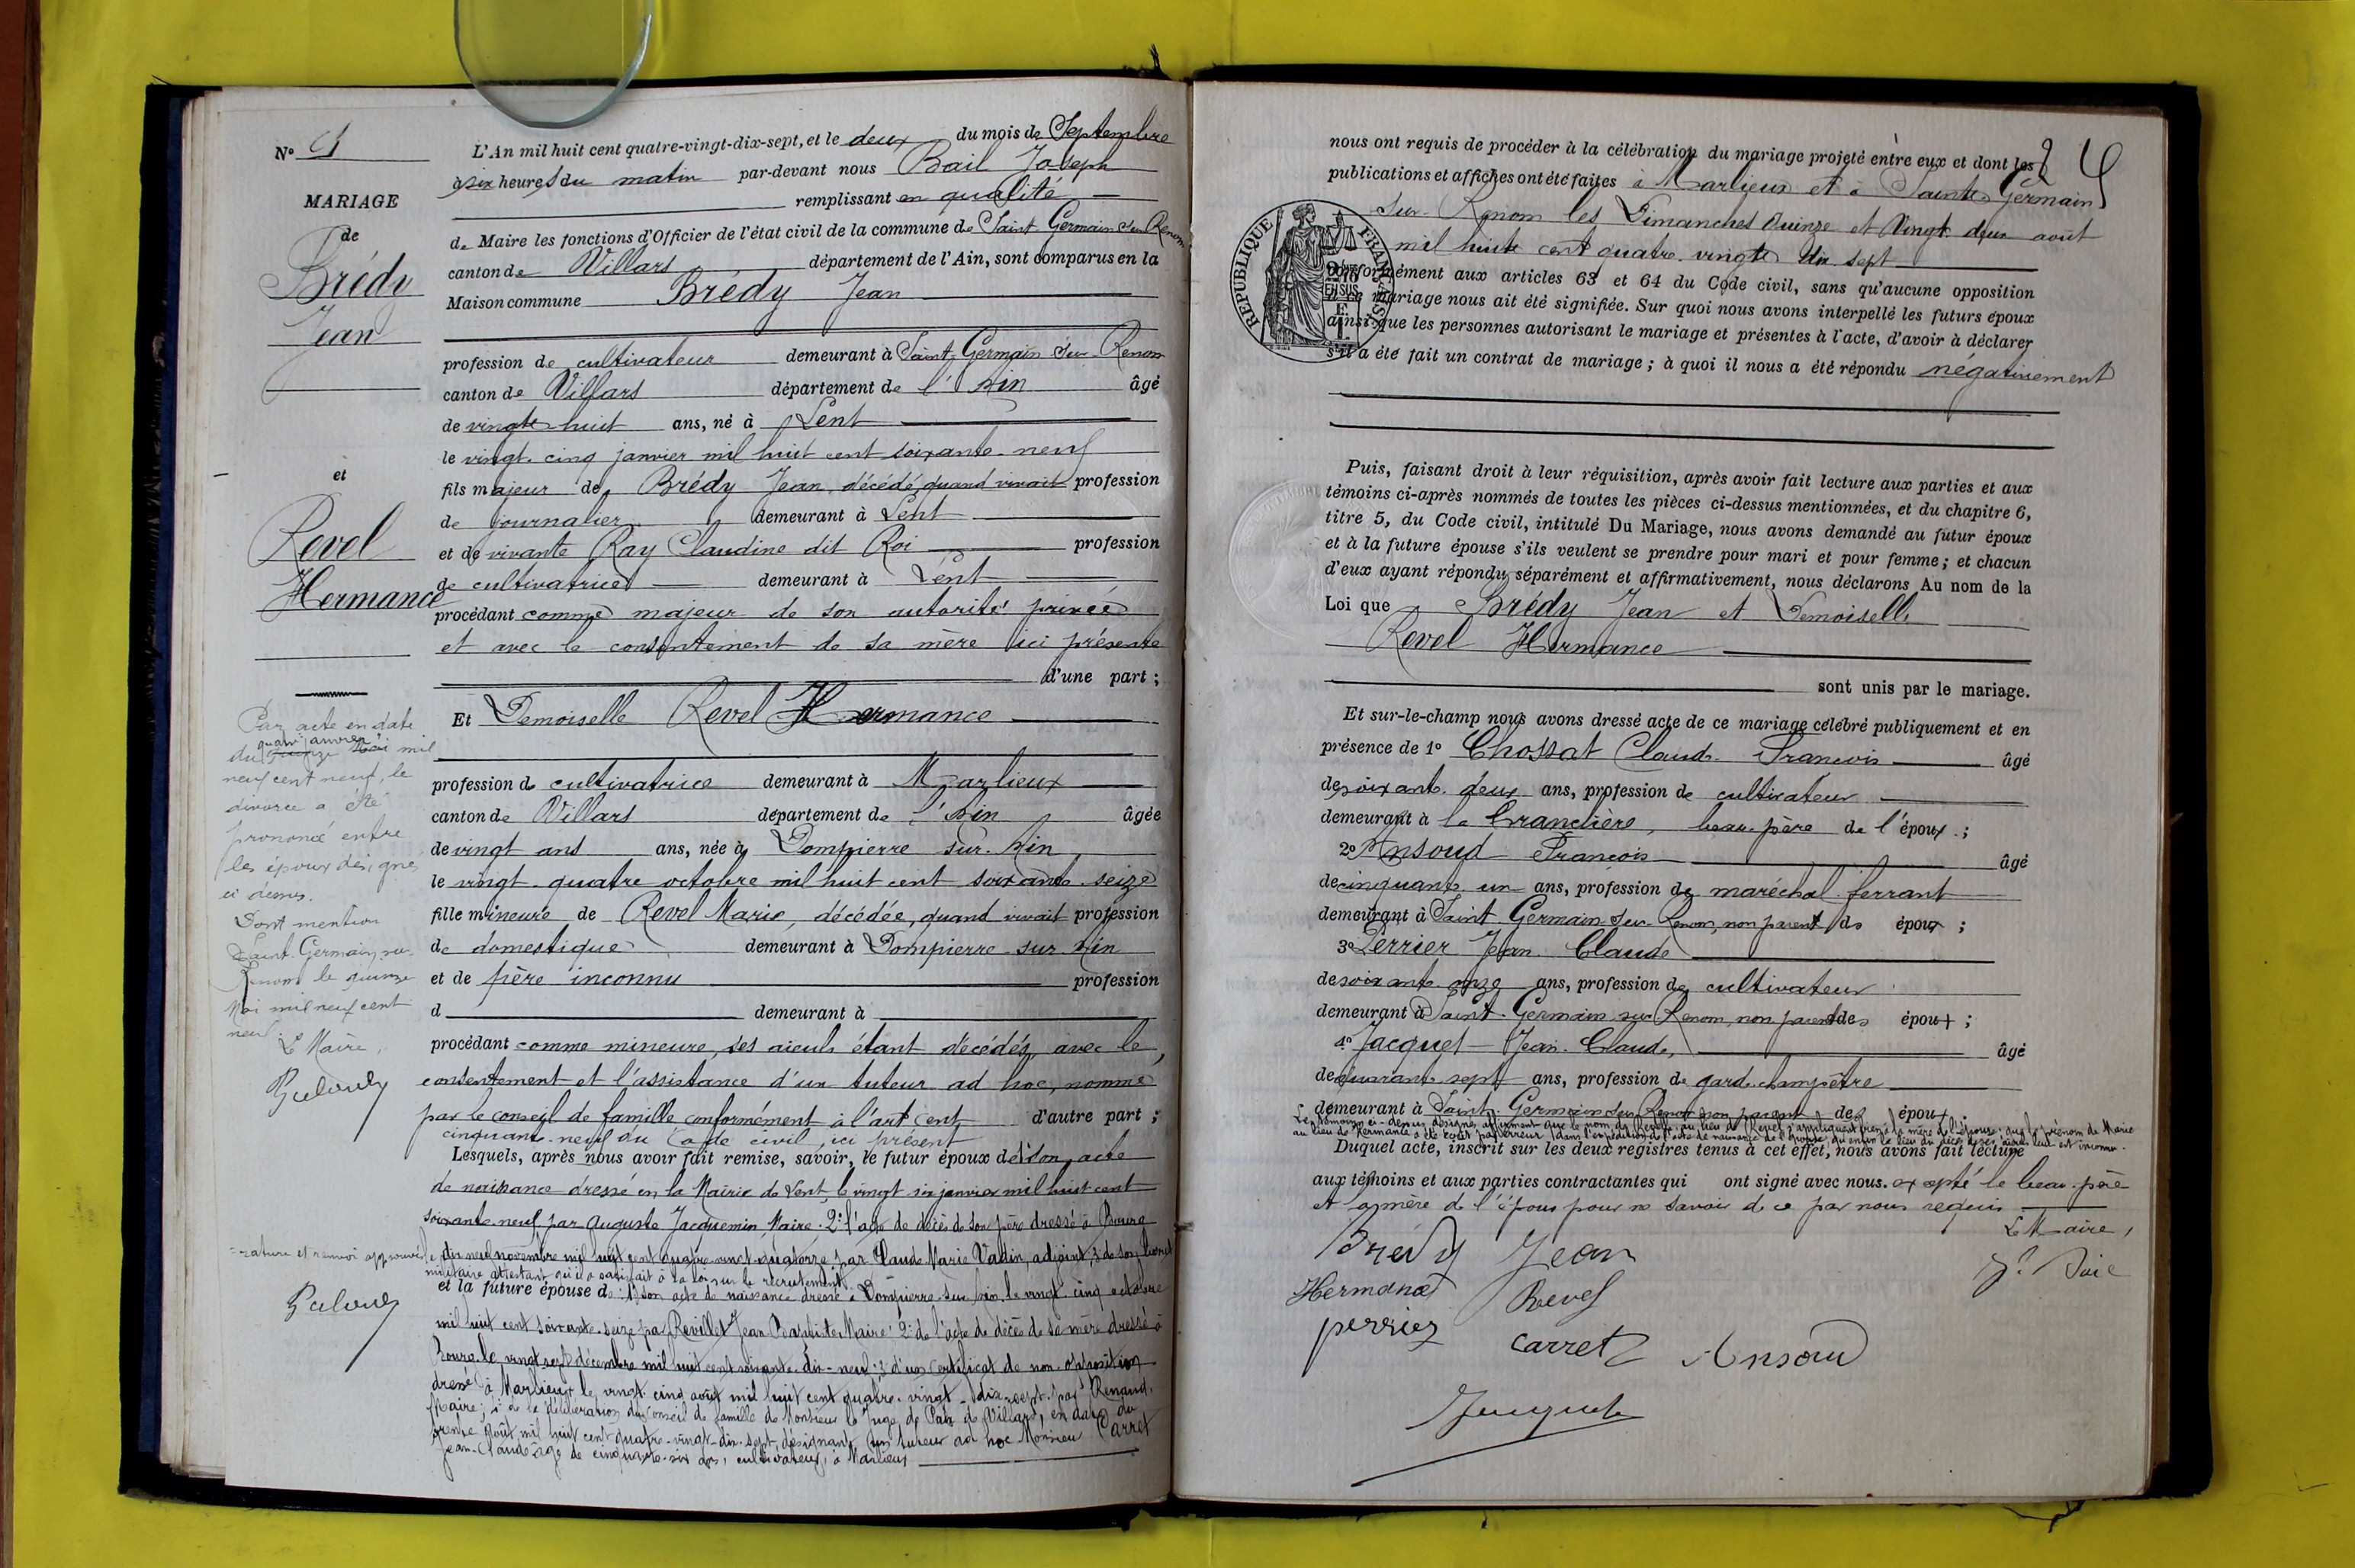 N° 9
MARIAGE
de
Brédy
Jean
et
Revel
Hermance
Par acte en date
du quatre janvier mil
neuf cent neuf, le
divorce a été
prononcé entre
les époux désignés
ci dessus.
Dont mention
Saint-Germain sur
Renom le quinze
Mai mil neuf cent
neuf.
Le Maire,
rature et renvoi approuvés
L'An mil huit cent quatre-vingt-dix-sept, et le deux du mois de Septembre
à six heures du matin par-devant nous Bail Joseph
remplissant en qualité
de Maire les fonctions d'Officier de l'état civil de la commune de Saint Germain sur Renom
canton de Villars département de l'Ain, sont comparus en la
Maison commune Brédy Jean
profession de cultivateur demeurant à Saint Germain sur Renom
canton de Villars département de l'Ain âgé
de vingt huit ans, né à Lent
le vingt cinq janvier mil huit cent soixante-neuf
fils majeur de Brédy Jean, décédé, quand vivait profession
de journalier demeurant à Lent
et de vivante Ray Claudine dit Roi profession
de cultivatrice demeurant à Lent
procédant comme majeur de son autorité privée
et avec le consentement de sa mère ici présente
d'une part ;
Et Demoiselle Revel Hermance
profession de cultivatrice demeurant à Marlieux
canton de Villars département de l'Ain âgée
de vingt ans ans, née à Dompierre sur Ain
le vingt-quatre octobre mil huit cent soixante seize
fille mineure de Revel Marie, décédée, quand vivait profession
de domestique demeurant à Dompierre sur Ain
et de père inconnu profession
d demeurant à
procédant comme mineure, ses aïeuls étant décédés, avec le
consentement et l'assistance d'un tuteur ad hoc, nommé
par le conseil de famille conformément à l'art cent d'autre part ;
cinquante-neuf du Code civil, ici présent
Lesquels, après nous avoir fait remise, savoir, le futur époux de 1° son acte
de naissance dressé en la Mairie de Lent, le vingt six janvier mil huit cent
soixante-neuf par Auguste Jacquemin, Maire. 2° l'acte de décès de son père dressé à Bourg
le dix neuf novembre mil huit cent quatre vingt quatorze par Claude Marie Vadin, adjoint, 3° de son livret
militaire attestant qu'il a satisfait à la loi sur le recrutement
et la future épouse de : 1° son acte de naissance dressé à Dompierre sur Ain, le vingt-cinq octobre
mil huit cent soixante-seize par Revillet Jean Baptiste Maire : 2° de l'acte de décès de sa mère dressé à
Bourg le vingt sept décembre mil huit cent soixante-dix-neuf ; 3° d'un certificat de non-opposition
dressé à Marlieux le vingt-cinq août mil huit cent quatre-vingt-dix-sept par Renaud,
Maire ; 4° de la délibération du Conseil de famille de Monsieur le Juge de Paix de Villars, en date du
trente août mil huit cent quatre-vingt-dix-sept, désignant un tuteur ad hoc Monsieur Carret
Jean-Claude âgé de cinquante-six ans, cultivateur, à Marlieux
nous ont requis de procéder à la célébration du mariage projeté entre eux et dont les
publications et affiches ont été faites à Marlieux et à Saint-Germain
sur-Renom les Dimanches Quinze et Vingt-deux août
mil huit cent quatre-vingt dix-sept
REPUBLIQUE FRANÇAISE
conformément aux articles 63 et 64 du Code civil, sans qu'aucune opposition
à ce mariage nous ait été signifiée. Sur quoi nous avons interpellé les futurs époux
ainsi que les personnes autorisant le mariage et présentes à l'acte, d'avoir à déclarer
s'il a été fait un contrat de mariage ; à quoi il nous a été répondu négativement
Puis, faisant droit à leur réquisition, après avoir fait lecture aux parties et aux
témoins ci-après nommés de toutes les pièces ci-dessus mentionnées, et du chapitre 6,
titre 5, du Code civil, intitulé Du Mariage, nous avons demandé au futur époux
et à la future épouse s'ils veulent se prendre pour mari et pour femme ; et chacun
d'eux ayant répondu séparément et affirmativement, nous déclarons Au nom de la
Loi que Brédy Jean et Demoiselle
Revel Hermance
sont unis par le mariage.
Et sur-le-champ nous avons dressé acte de ce mariage célébré publiquement et en
présence de 1° Chossat Claude François âgé
de soixante deux ans, profession de cultivateur
demeurant à la Tranclière, beau-père de l'époux ;
2° Ansoud François âgé
de cinquante un ans, profession de maréchal ferrant
demeurant à Saint-Germain-sur-Renom, non parent des époux ;
3° Perrier Jean Claude
de soixante onze ans, profession de cultivateur
demeurant à Saint-Germain sur Renom, non parent des époux ;
4° Jacquet Jean-Claude, âgé
de quarante sept ans, profession de garde champêtre
demeurant à Saint-Germain sur Renom non parent des époux.
Duquel acte, inscrit sur les deux registres tenus à cet effet, nous avons fait lecture
aux témoins et aux parties contractantes qui ont signé avec nous. excepté le beau-père
et la mère de l'époux pour ne savoir de ce par nous requis
Le Maire,
Brédy Jean
Hermance Revel
perrier carret Ansoud
Jacquet